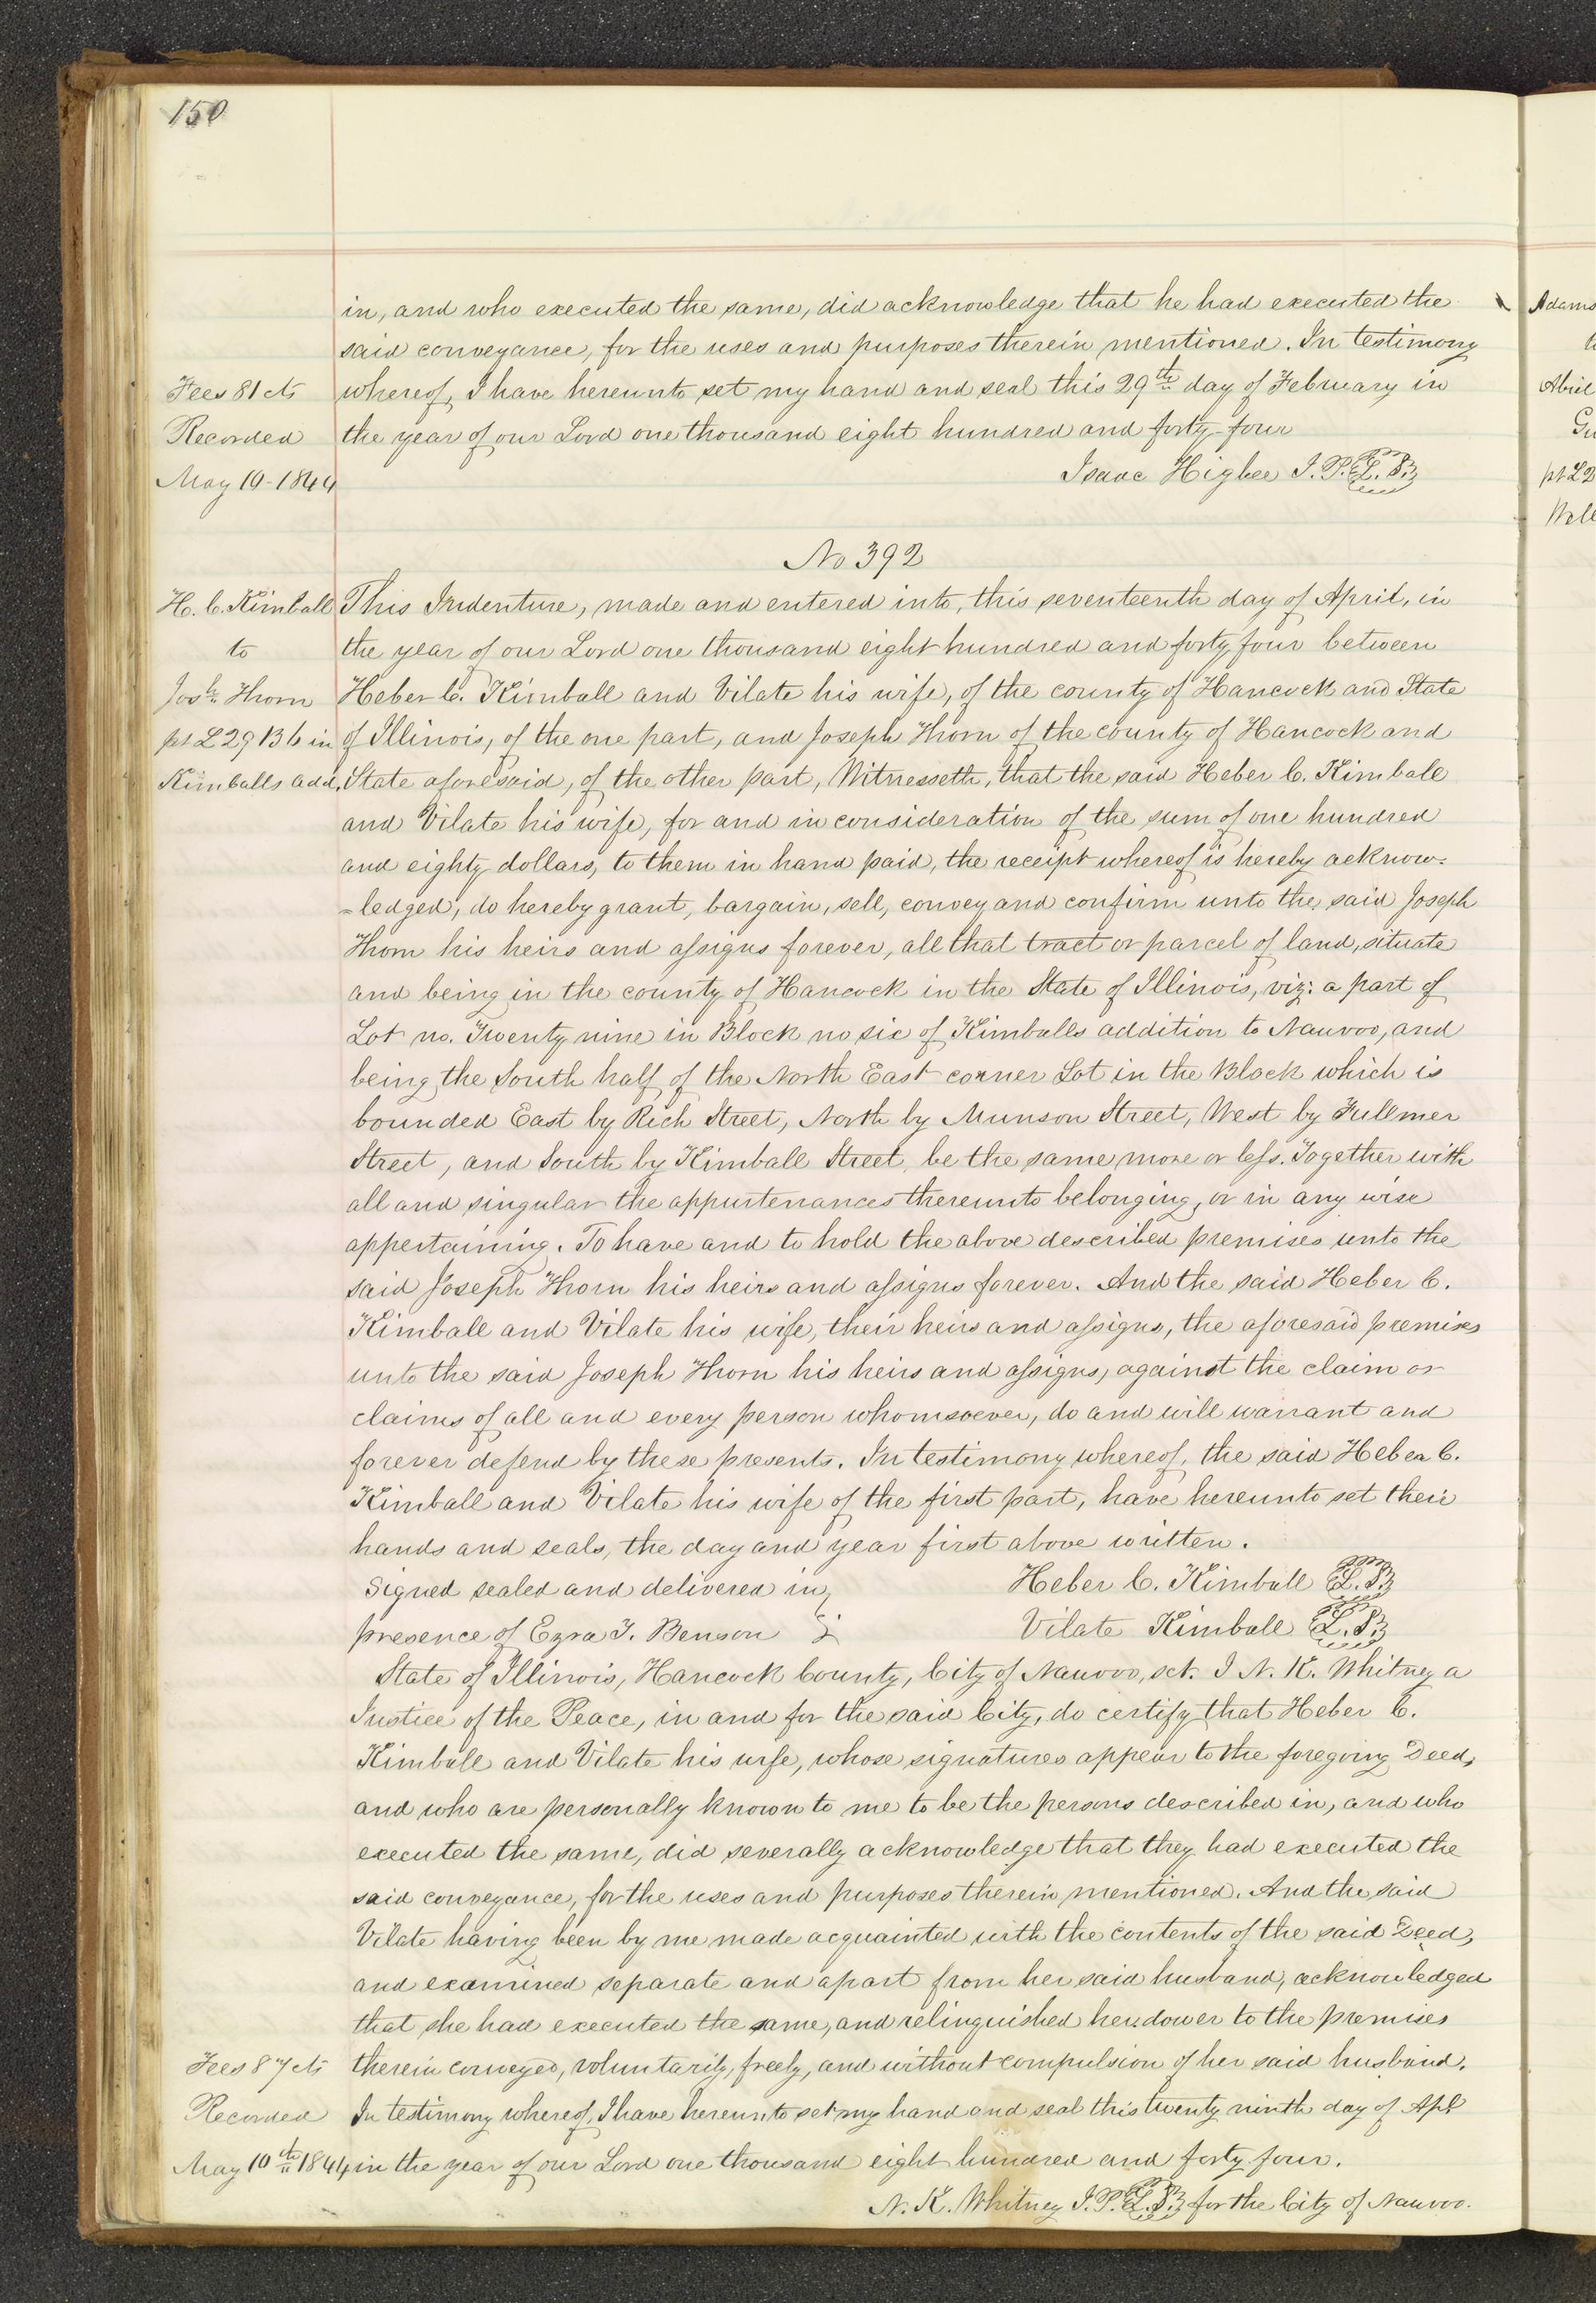 150
in, and who executed the same, did acknowledge that he had executed the
said conveyance, for the uses and purposes therein mentioned. In testimony
Fees 81 cts
whereof, I have hereunto set my hand and seal this 29th day of February in
Recorded
the year of our Lord one thousand eight hundred and forty four
May 10-1844
Isaac Higbee J. P. L. S.
No 392
H. C. Kimball
This Indenture, made and entered into, this seventeenth day of April, in
to
the year of our Lord one thousand eight hundred and forty four between
Josh. Thorn
Heber C. Kimball and Vilate his wife, of the county of Hancock and State
pt L 29 B 6 in
of Illinois, of the one part, and Joseph Thorn of the county of Hancock and
Kimballs add.
State aforesaid, of the other part, Witnesseth, that the said Heber C. Kimball
and Vilate his wife, for and in consideration of the sum of one hundred
and eighty dollars, to them in hand paid, the receipt whereof is hereby acknow=
=ledged, do hereby grant, bargain, sell, convey and confirm unto the said Joseph
Thorn his heirs and assigns forever, all that tract or parcel of land, situate
and being in the county of Hancock in the State of Illinois, viz: a part of
Lot no. Twenty nine in Block no six of Kimballs addition to Nauvoo, and
being the South half of the North East corner Lot in the Block which is
bounded East by Rich Street, North by Munson Street, West by Fullmer
Street, and South by Kimball Street, be the same more or less. Together with
all and singular the appurtenances thereunto belonging, or in any wise
appertaining. To have and to hold the above described premises unto the
said Joseph Thorn his heirs and assigns forever. And the said Heber C.
Kimball and Vilate his wife, their heirs and assigns, the aforesaid premises
unto the said Joseph Thorn his heirs and assigns, against the claim or
claims of all and every person whomsoever, do and will warrant and
forever defend by these presents. In testimony whereof, the said Heber C.
Kimball and Vilate his wife of the first part, have hereunto set their
hands and seals, the day and year first above written.
Signed sealed and delivered in
Heber C. Kimball L. S.
presence of Ezra T. Benson
Vilate Kimball L. S.
State of Illinois, Hancock County, City of Nauvoo, sct. I N. K. Whitney a
Justice of the Peace, in and for the said City, do certify that Heber C.
Kimball and Vilate his wife, whose signatures appear to the foregoing Deed,
and who are personally known to me to be the persons described in, and who
executed the same, did severally acknowledge that they had executed the
said conveyance, for the uses and purposes therein mentioned. And the said
Vilate having been by me made acquainted with the contents of the said Deed,
and examined separate and apart from her said husband, acknowledged
that she had executed the same, and relinquished her dower to the premises
Fees 87 cts
therein conveyed, voluntarily, freely, and without compulsion of her said husband.
Recorded
In testimony whereof, I have hereunto set my hand and seal this twenty ninth day of Apl
May 10th 1844
in the year of our Lord one thousand eight hundred and forty four.
N. K. Whitney J. P. L. S. for the City of Nauvoo.
Adams
pt L 2